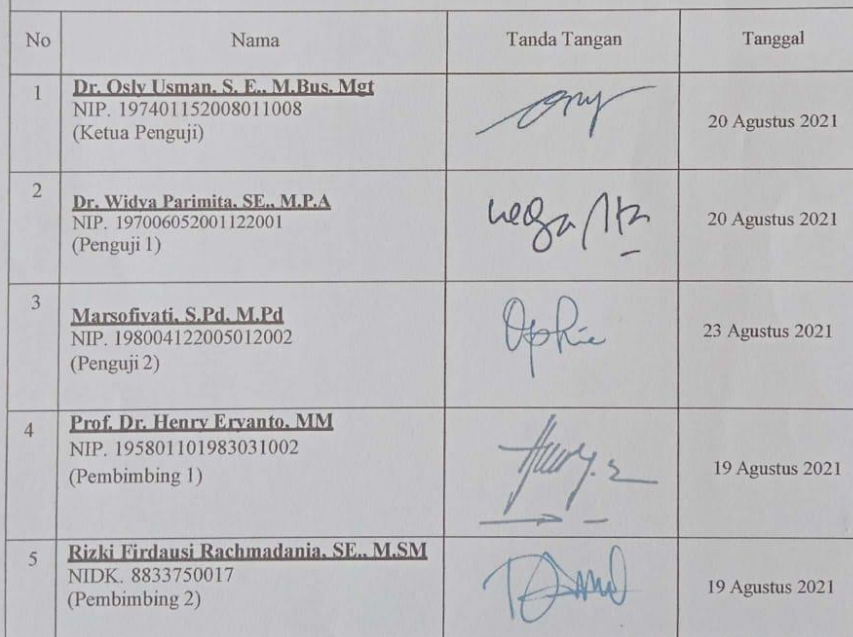 No Nama Tanda Tangan Tanggal
1 Dr. Osly Usman, S. E., M.Bus, Mgt
NIP. 197401152008011008
(Ketua Penguji)
20 Agustus 2021
2 Dr. Widya Parimita, SE., M.P.A
NIP. 197006052001122001
(Penguji 1)
20 Agustus 2021
3 Marsofiyati, S.Pd, M.Pd
NIP. 198004122005012002
(Penguji 2)
23 Agustus 2021
4 Prof. Dr. Henry Eryanto, MM
NIP. 195801101983031002
(Pembimbing 1)
19 Agustus 2021
5 Rizki Firdausi Rachmadania, SE., M.SM
NIDK. 8833750017
(Pembimbing 2)
19 Agustus 2021